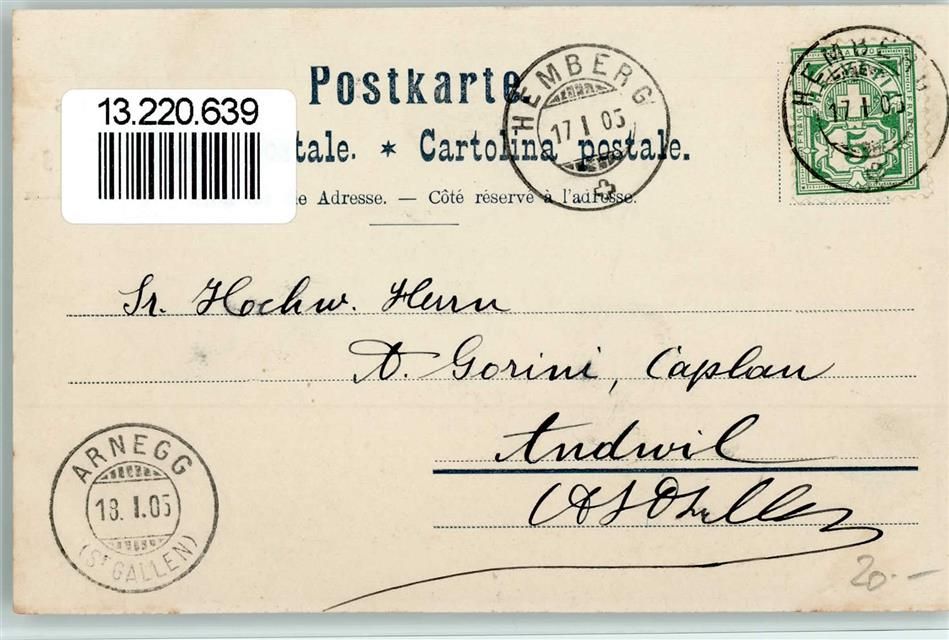 Postkarte
13.220.639
tale. * Cartolina postale.
e Adresse. — Côté réservé à l'adresse.
HEMBERG
17 I 05
HEMBERG
17 I 05
HELVETIA
FRANCO
5
Sr. Hochw. Herrn
A. Gorini, Caplan
Andwil
ARNEGG
18. I. 05
(ST GALLEN)
20.-